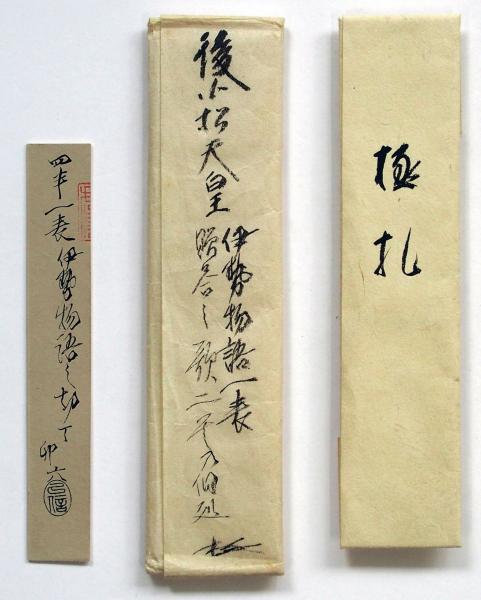 極札
後小松天皇
伊勢物語一表
贈答之歌二
四半一表伊勢物語之切了
卯六